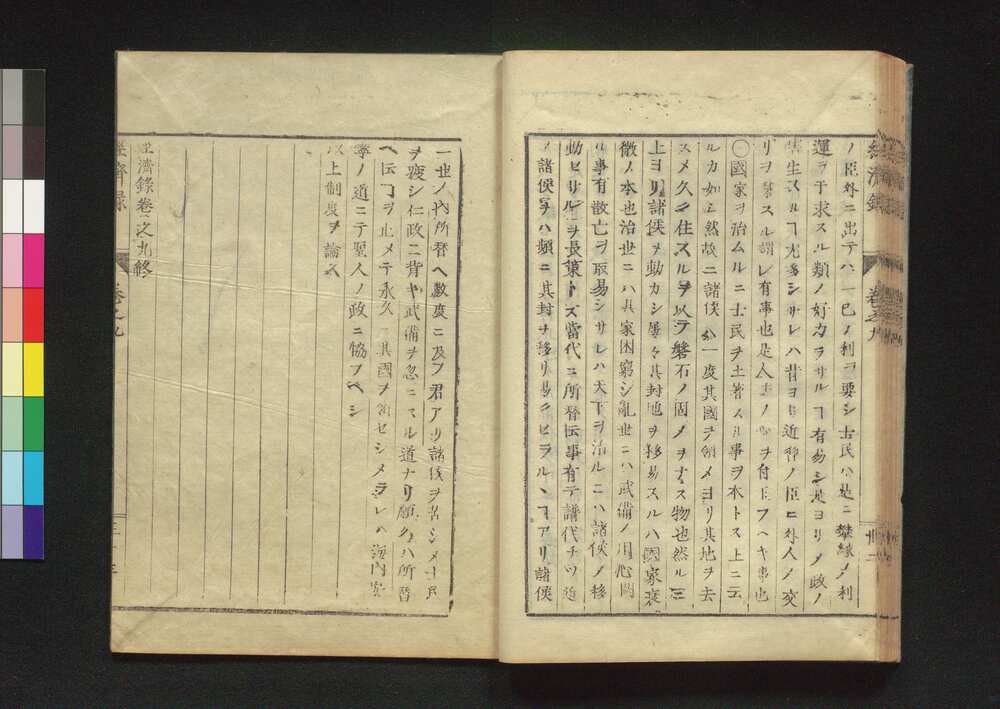 ノ臣外ニ出テハ一己ノ利ヲ要シ士民ハ是ニ攀縁メ利
運ヲ干求スル類ノ好カラサルヿ有易シ是ヨリメ政ノ
生スルヿ尤多シサレハ昔ヨリ近習ノ臣ニ外人ノ交
リヲ禁スル謂レ有事也是人主ノ心ヲ付玉フヘキ事也
〇國家ヲ治ムルニ士民ヲ土著スル事ヲ本トス上ニ云
ルカ如シ然故ニ諸侯ハ一度其國ヲ領メヨリ其地ヲ去
スメ久ク住スルヲ以テ磐石ノ固メヲナス物也然ルニ
上ヨリ諸侯ヲ動カシ屡々其封地ヲ移易スルハ國家衰
微ノ本也治世ニハ其家困窮シ亂世ニハ武備ノ用心闕
ル事有散亡ヲ取易シサレハ天下ヲ治ルニハ諸侯ノ移
動セサルヲ長策トス當代ニ所替ト云事有テ譜代チツ近
ノ諸侯ヲハ類ニ其封ヲ移リ易ラセラルヽヿアリ諸侯
經濟録 卷之九 卅二
一世ノ内所替ヘ數度ニ及フ君アリ諸侯ヲ苦シメ士民
ヲ疲シ仁政ニ背キ武備ヲ忽ニスル道ナリ願クハ所替
ヘト云フヿヲ止メテ永久ニ其國ヲ領セシメラレハ海内安
寧ノ道ニテ聖人ノ政ニ協フヘシ
以上制度ヲ論ス
經濟録卷之九終
經濟録 卷之九